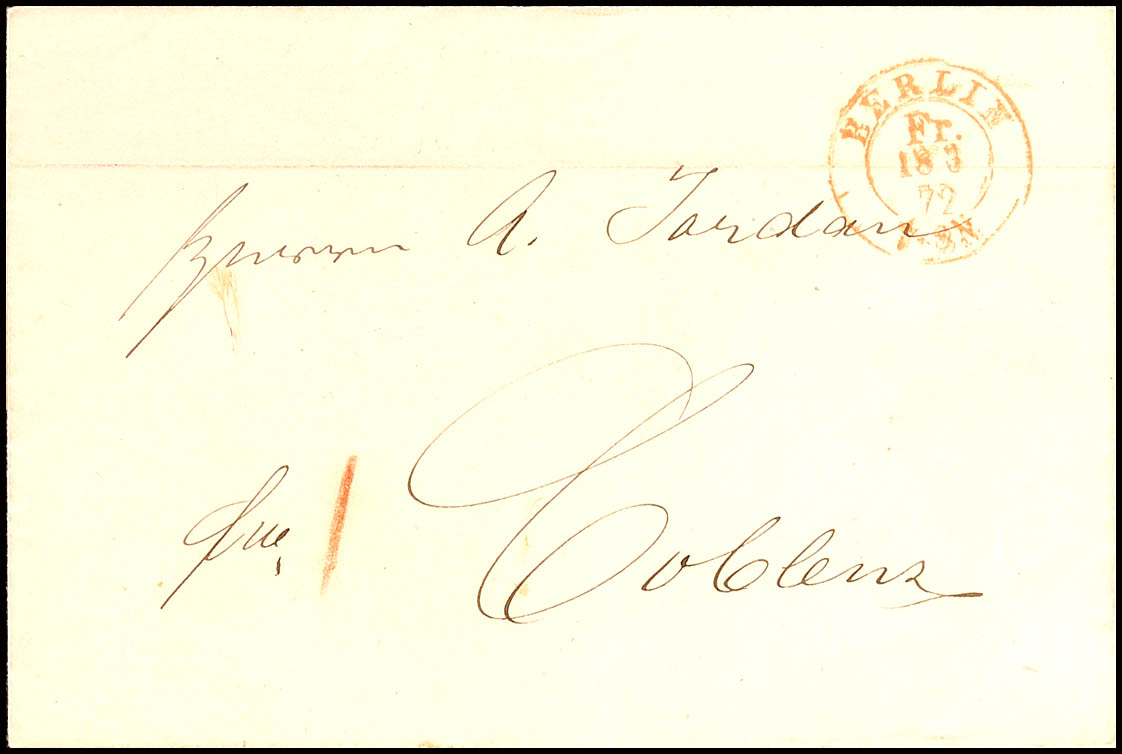 BERLIN
Fr.
18 3
72
Herrn A. Jordan
Coblenz